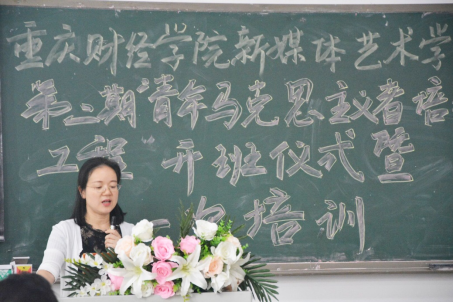 重庆财经学院新媒体艺术学
第二期青年马克思主义者培
工程 开班仪式暨
培训